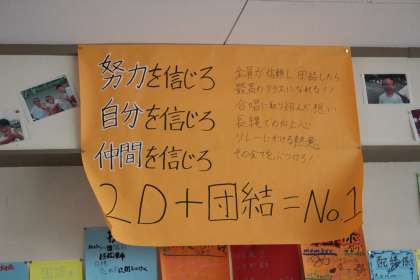 努力を信じろ
自分を信じろ
仲間を信じろ
全員が信頼し団結したら
最高のクラスになれる!!
合唱に取り組んだ想い
長縄での向上心
リレーにかける熱意
その全てをぶつけろ!
2D+団結=No1